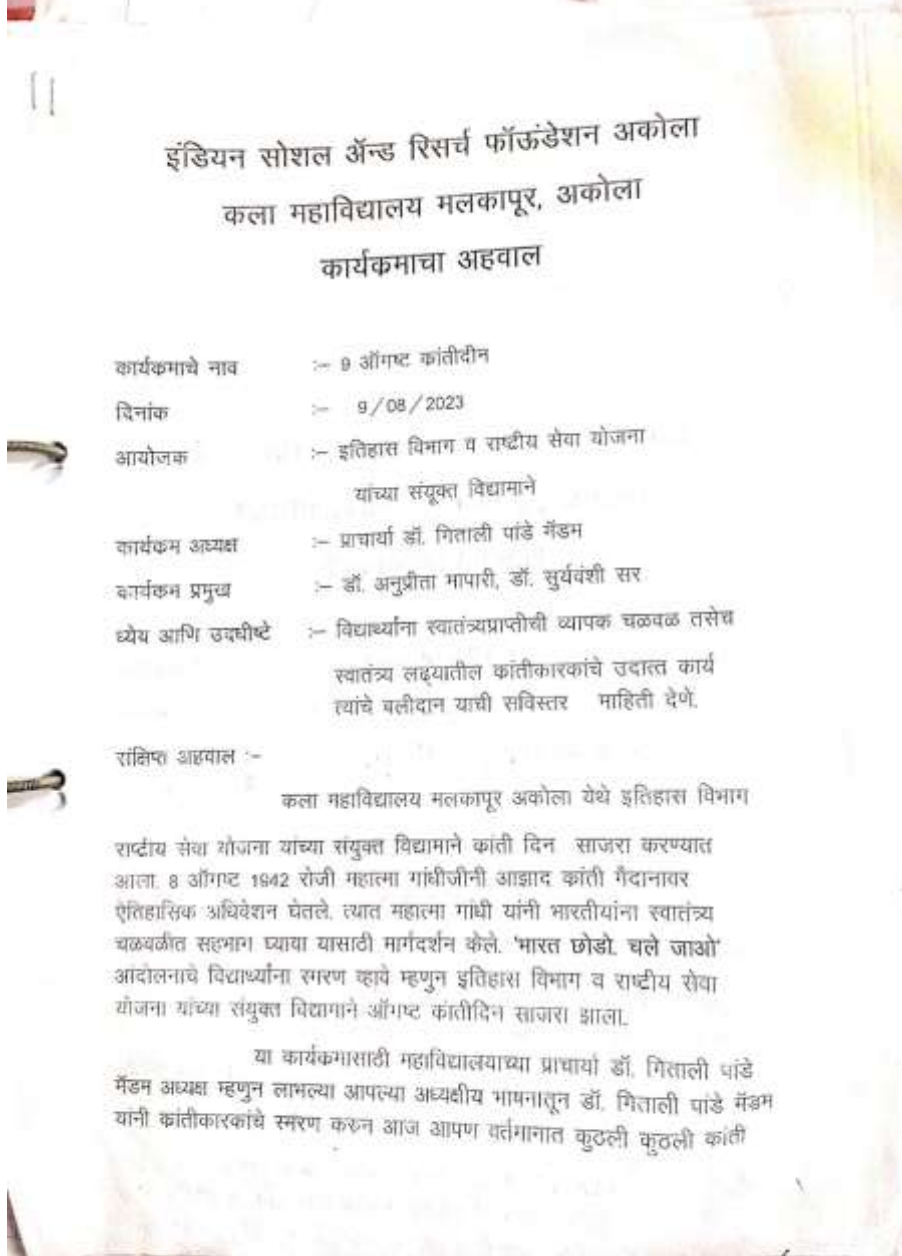 11
इंडियन सोशल ॲन्ड रिसर्च फॉऊंडेशन अकोला
कला महाविद्यालय मलकापूर, अकोला
कार्यकमाचा अहवाल
कार्यकमाचे नाव :– 9 ऑगष्ट कांतीदीन
दिनांक :– 9/08/2023
आयोजक :– इतिहास विभाग व राष्टीय सेवा योजना
यांच्या संयूक्त विद्यामाने
कार्यकम अध्यक्ष :– प्राचार्या डॉ. गिताली पांडे मॅडम
कार्यकम प्रमुख :– डॉ. अनुप्रीता मापारी, डॉ. सुर्यवंशी सर
ध्येय आणि उदघीष्टे :– विद्यार्थ्यांना स्वातंत्र्यप्राप्तीची व्यापक चळवळ तसेच
स्वातंत्र्य लढ्यातील कांतीकारकांचे उदात्त कार्य
त्यांचे बलीदान याची सविस्तर माहिती देणे.
संक्षिप्त अहवाल :–
कला महाविद्यालय मलकापूर अकोला येथे इतिहास विभाग
राष्टीय सेवा योजना यांच्या संयुक्त विद्यामाने कांती दिन साजरा करण्यात
आला. 8 ऑगष्ट 1942 रोजी महात्मा गांधीजीनी आझाद कांती मैदानावर
ऐतिहासिक अधिवेशन घेतले. त्यात महात्मा गांधी यांनी भारतीयांना स्वातंत्र्य
चळवळीत सहभाग घ्यावा यासाठी मार्गदर्शन केले. 'भारत छोडो. चले जाओ'
आंदोलनाचे विद्यार्थ्यांना स्मरण व्हावे म्हणुन इतिहास विभाग व राष्टीय सेवा
योजना यांच्या संयुक्त विद्यामाने ऑगष्ट कांतीदिन साजरा झाला.
या कार्यकमासाठी महाविद्यालयाच्या प्राचार्या डॉ. गिताली पांडे
मॅडम अध्यक्ष म्हणुन लाभल्या आपल्या अध्यक्षीय भाषनातून डॉ. गिताली पांडे मॅडम
यांनी कांतीकारकांचे स्मरण करुन आज आपण वर्तमानात कुठली कुठली कांती